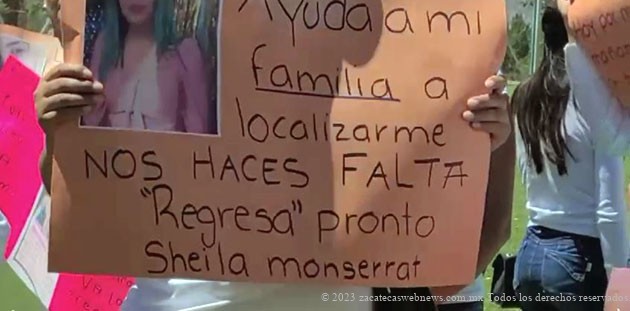 Ayuda a mi
familia a
localizarme
NOS HACES FALTA
"Regresa" pronto
Sheila monserrat
Hoy por mi
© 2023 zacatecaswebnews.com.mx Todos los derechos reservados